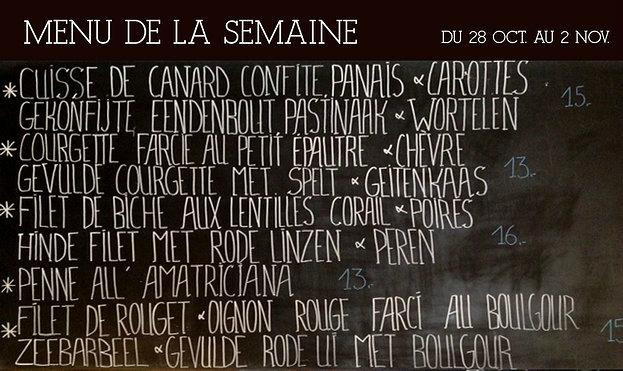 MENU DE LA SEMAINE DU 28 OCT. AU 2 NOV.
* CUISSE DE CANARD CONFITE, PANAIS & CAROTTES 15.-
GEKONFIJTE EENDENBOUT PASTINAAK & WORTELEN
* COURGETTE FARCIE AU PETIT ÉPAUTRE & CHÈVRE 13.-
GEVULDE COURGETTE MET SPELT & GEITENKAAS
* FILET DE BICHE AUX LENTILLES CORAIL & POIRES 16.-
HINDE FILET MET RODE LINZEN & PEREN
* PENNE ALL' AMATRICIANA 13.-
* FILET DE ROUGET & OIGNON ROUGE FARCI AU BOULGOUR 15
ZEEBARBEEL & GEVULDE RODE UI MET BOULGOUR